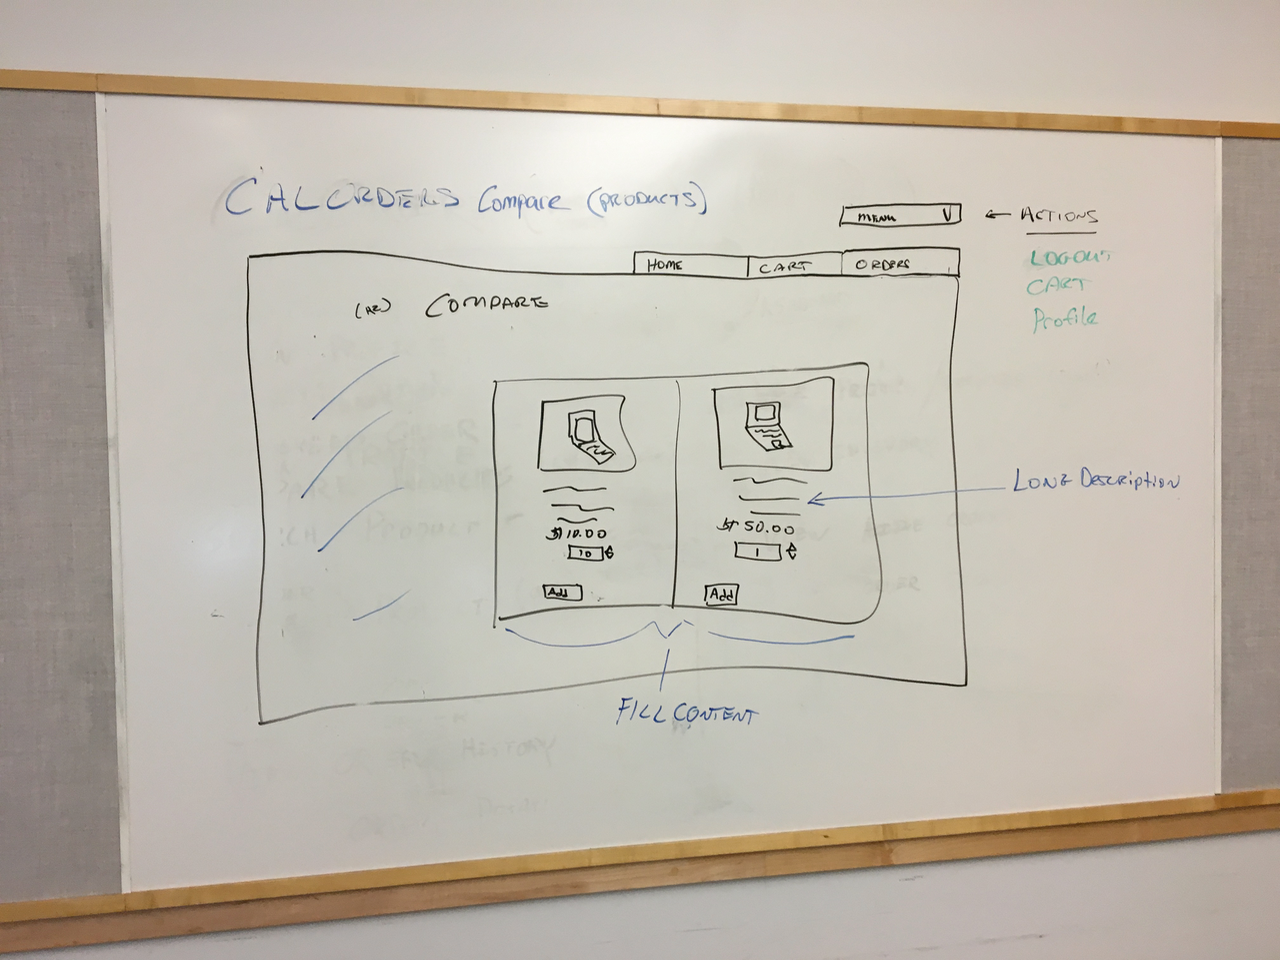 CALORDERS Compare (PRODUCTS)
MENU V
← ACTIONS
LOGOUT
CART
Profile
HOME
CART
ORDERS
COMPARE
$10.00
10
Add
$50.00
1
Add
LONG DESCRIPTION
FILL CONTENT
HISTORY